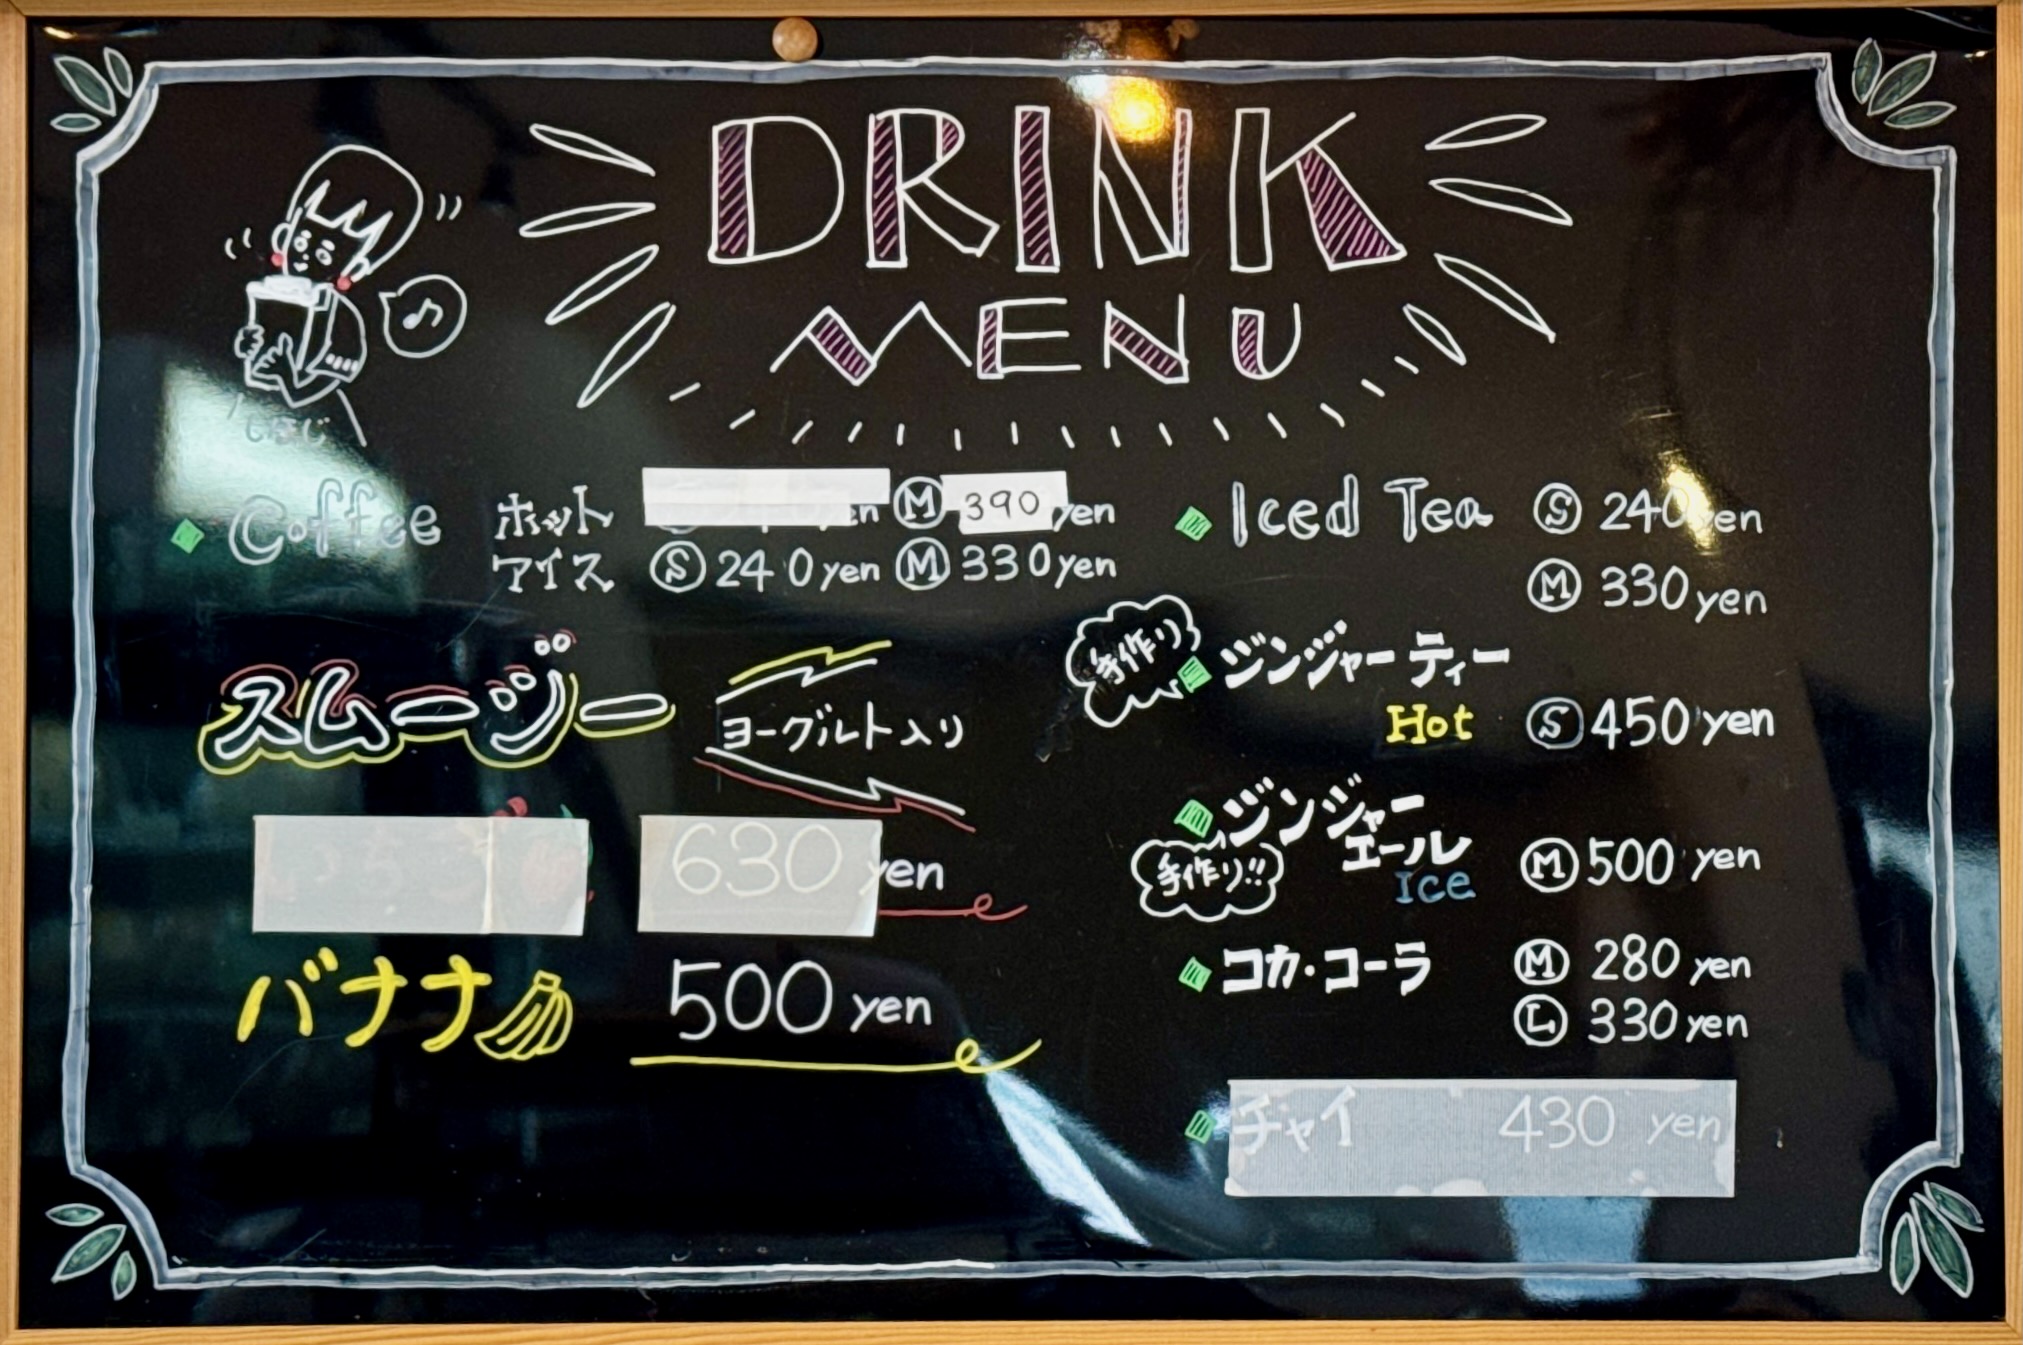 DRINK
MENU
Coffee ホット Ⓜ 390 yen
アイス Ⓢ 240yen Ⓜ 330yen
スムージー ヨーグルト入り
630 yen
バナナ 500 yen
Iced Tea Ⓢ 240 yen
Ⓜ 330 yen
手作り ジンジャーティー
Hot Ⓢ 450 yen
ジンジャー
エール Ⓜ 500 yen
手作り!! Ice
コカ・コーラ Ⓜ 280 yen
Ⓛ 330 yen
チャイ 430 yen